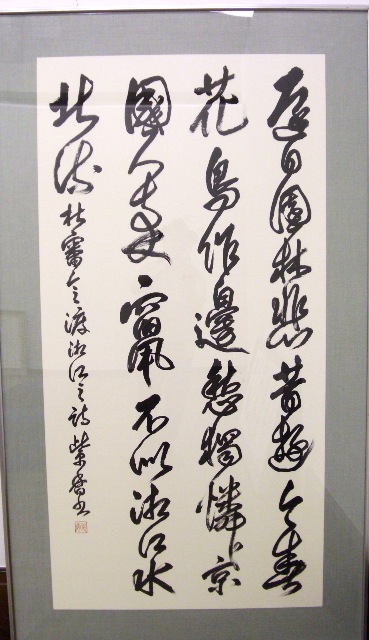 遲日園林悲昔遊今春
花鳥作邊愁獨憐京
國人南竄不似湘江水
北流 杜審言渡湘江之詩 香書